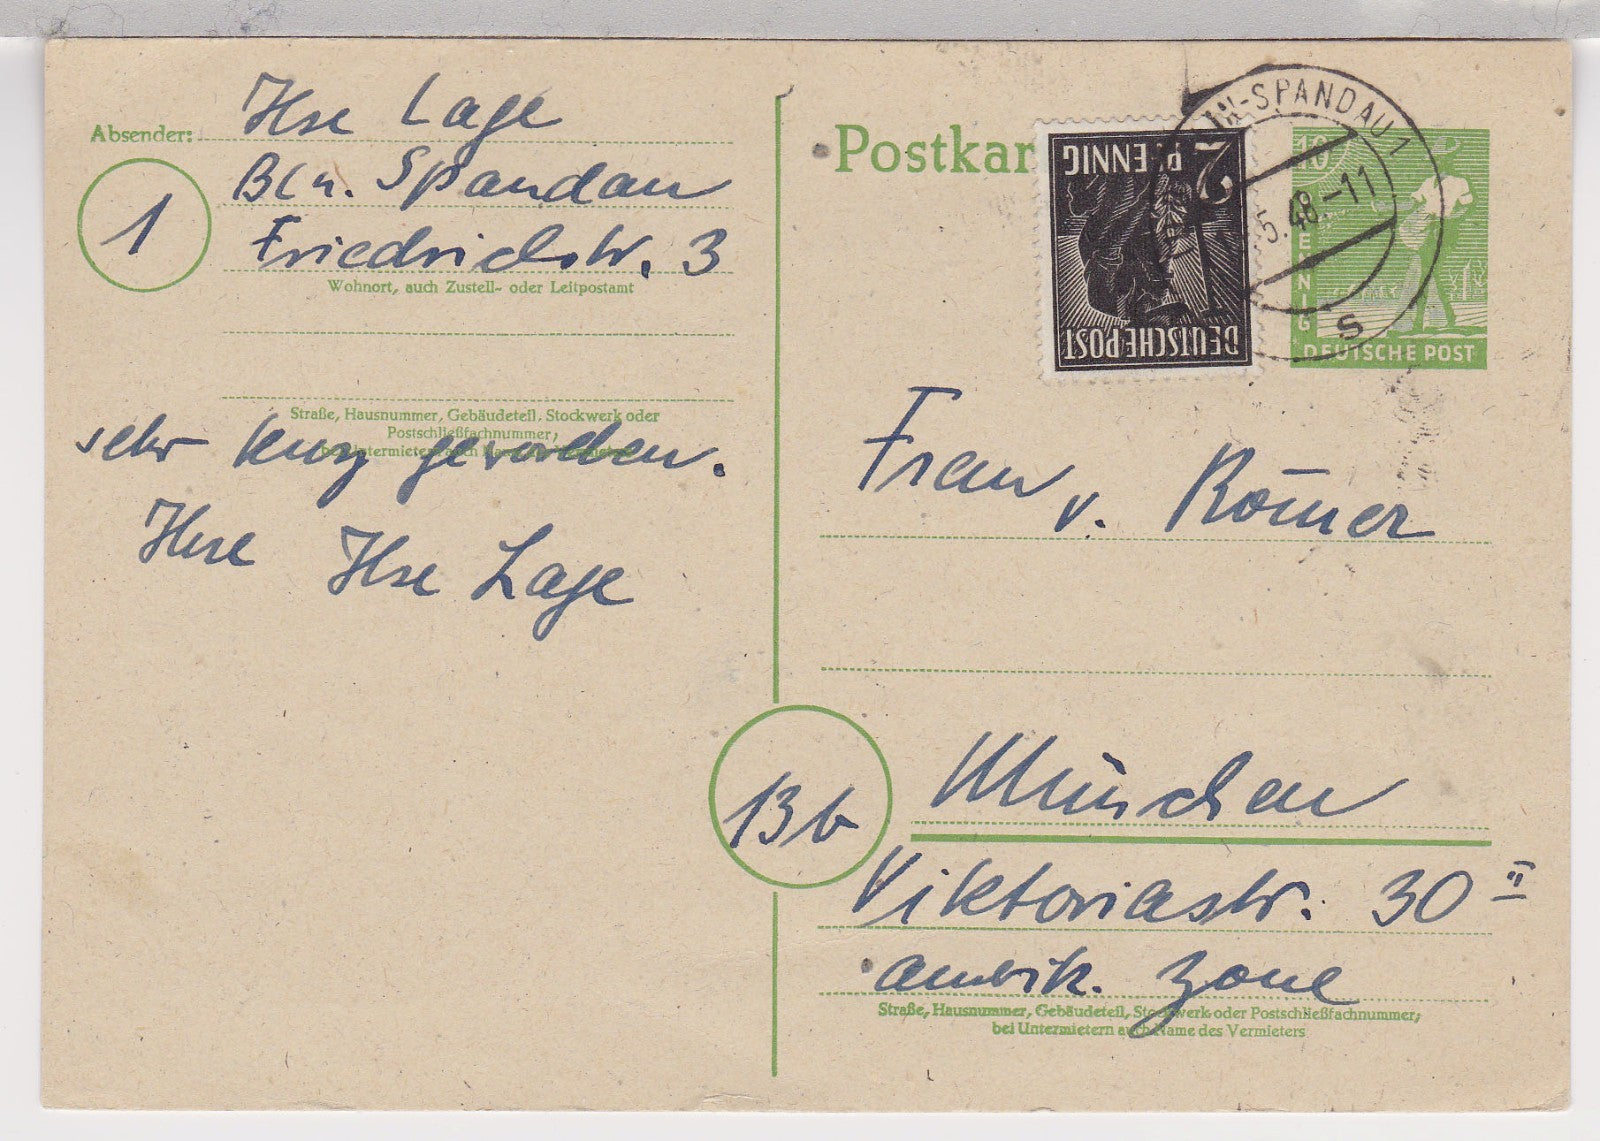 Absender: Ilse Lage
1
Bln. Spandau
Friedrichstr. 3
Wohnort, auch Zustell- oder Leitpostamt
Straße, Hausnummer, Gebäudeteil, Stockwerk oder
Postschließfachnummer;
sehr kurz geworden.
Ihre Ilse Lage
Postkar
2
PFENNIG
DEUTSCHE POST
LIN-SPANDAU 1
5.48.-11
s
10
PFENNIG
DEUTSCHE POST
Frau v. Römer
13b
München
Viktoriastr. 30 II
amerik. Zone
Straße, Hausnummer, Gebäudeteil, Stockwerk oder Postschließfachnummer;
bei Untermietern auch Name des Vermieters